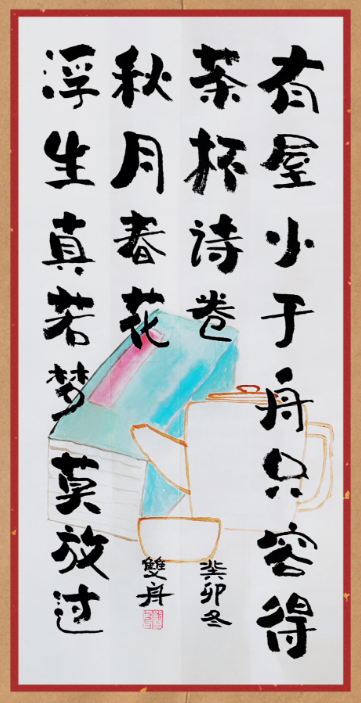 有屋小于舟只容得
茶杯诗卷
浮生真若梦莫放过
秋月春花
癸卯冬
雙舟